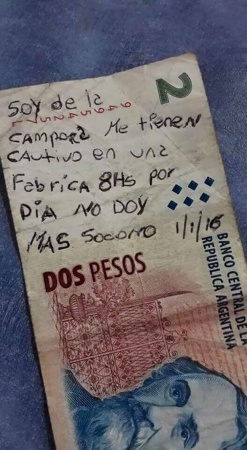 2
Soy de la
campora Me tienen
cautivo en una
Fabrica 8Hs por
DIA NO DOY
MAS Socorro 1/1/16
DOS PESOS
BANCO CENTRAL DE LA
REPUBLICA ARGENTINA